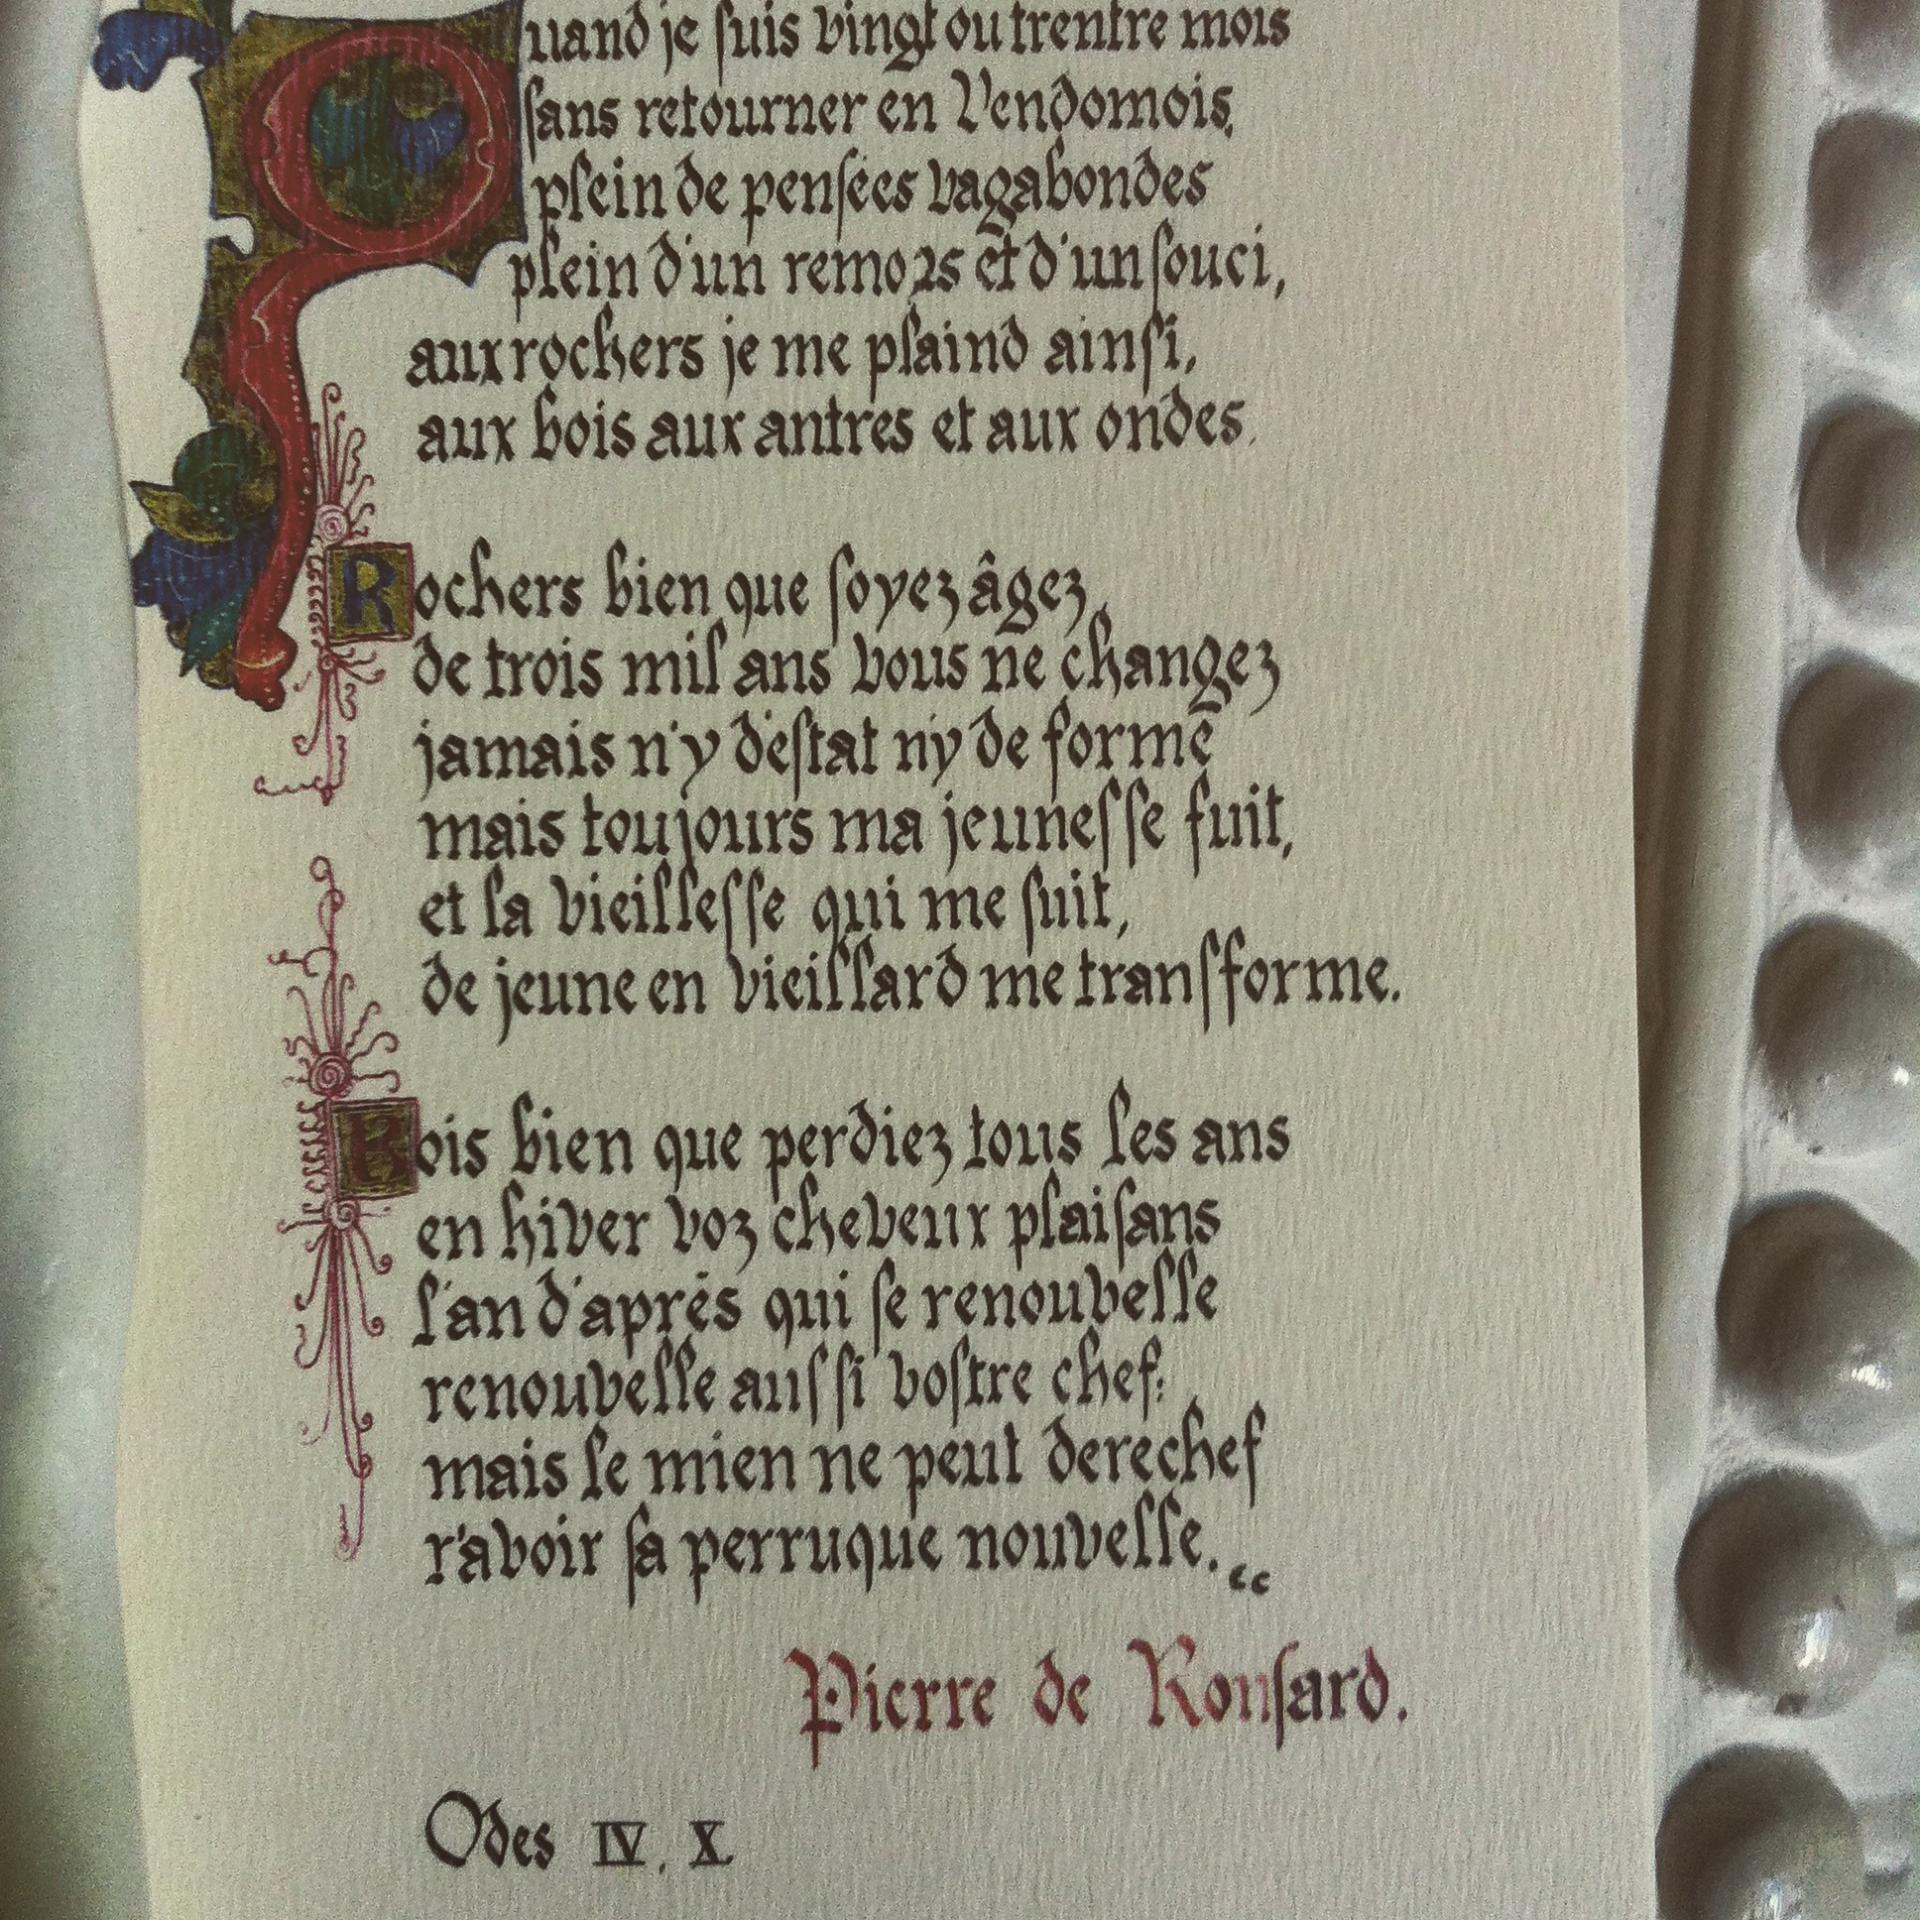 Quand je suis vingt ou trentre mois
sans retourner en Vendomois,
plein de pensées vagabondes
plein d'un remors et d'un souci,
aux rochers je me plaind ainsi,
aux bois aux antres et aux ondes.
Rochers bien que soyez âgez,
de trois mil ans vous ne changez
jamais n'y d'estat ny de forme
mais toujours ma jeunesse fuit,
et la vieillesse qui me suit,
de jeune en vieillard me transforme.
Bois bien que perdiez tous les ans
en hiver voz cheveux plaisans
l'an d'aprés qui se renouvelle
renouvelle aussi vostre chef:
mais le mien ne peut derechef
r'avoir sa perruque nouvelle.
Pierre de Ronsard.
Odes IV. X.